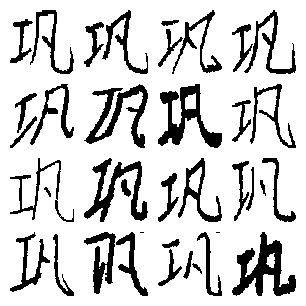 巩 巩 巩 巩
巩 巩 巩 巩
巩 巩 巩 巩
巩 巩 巩 巩